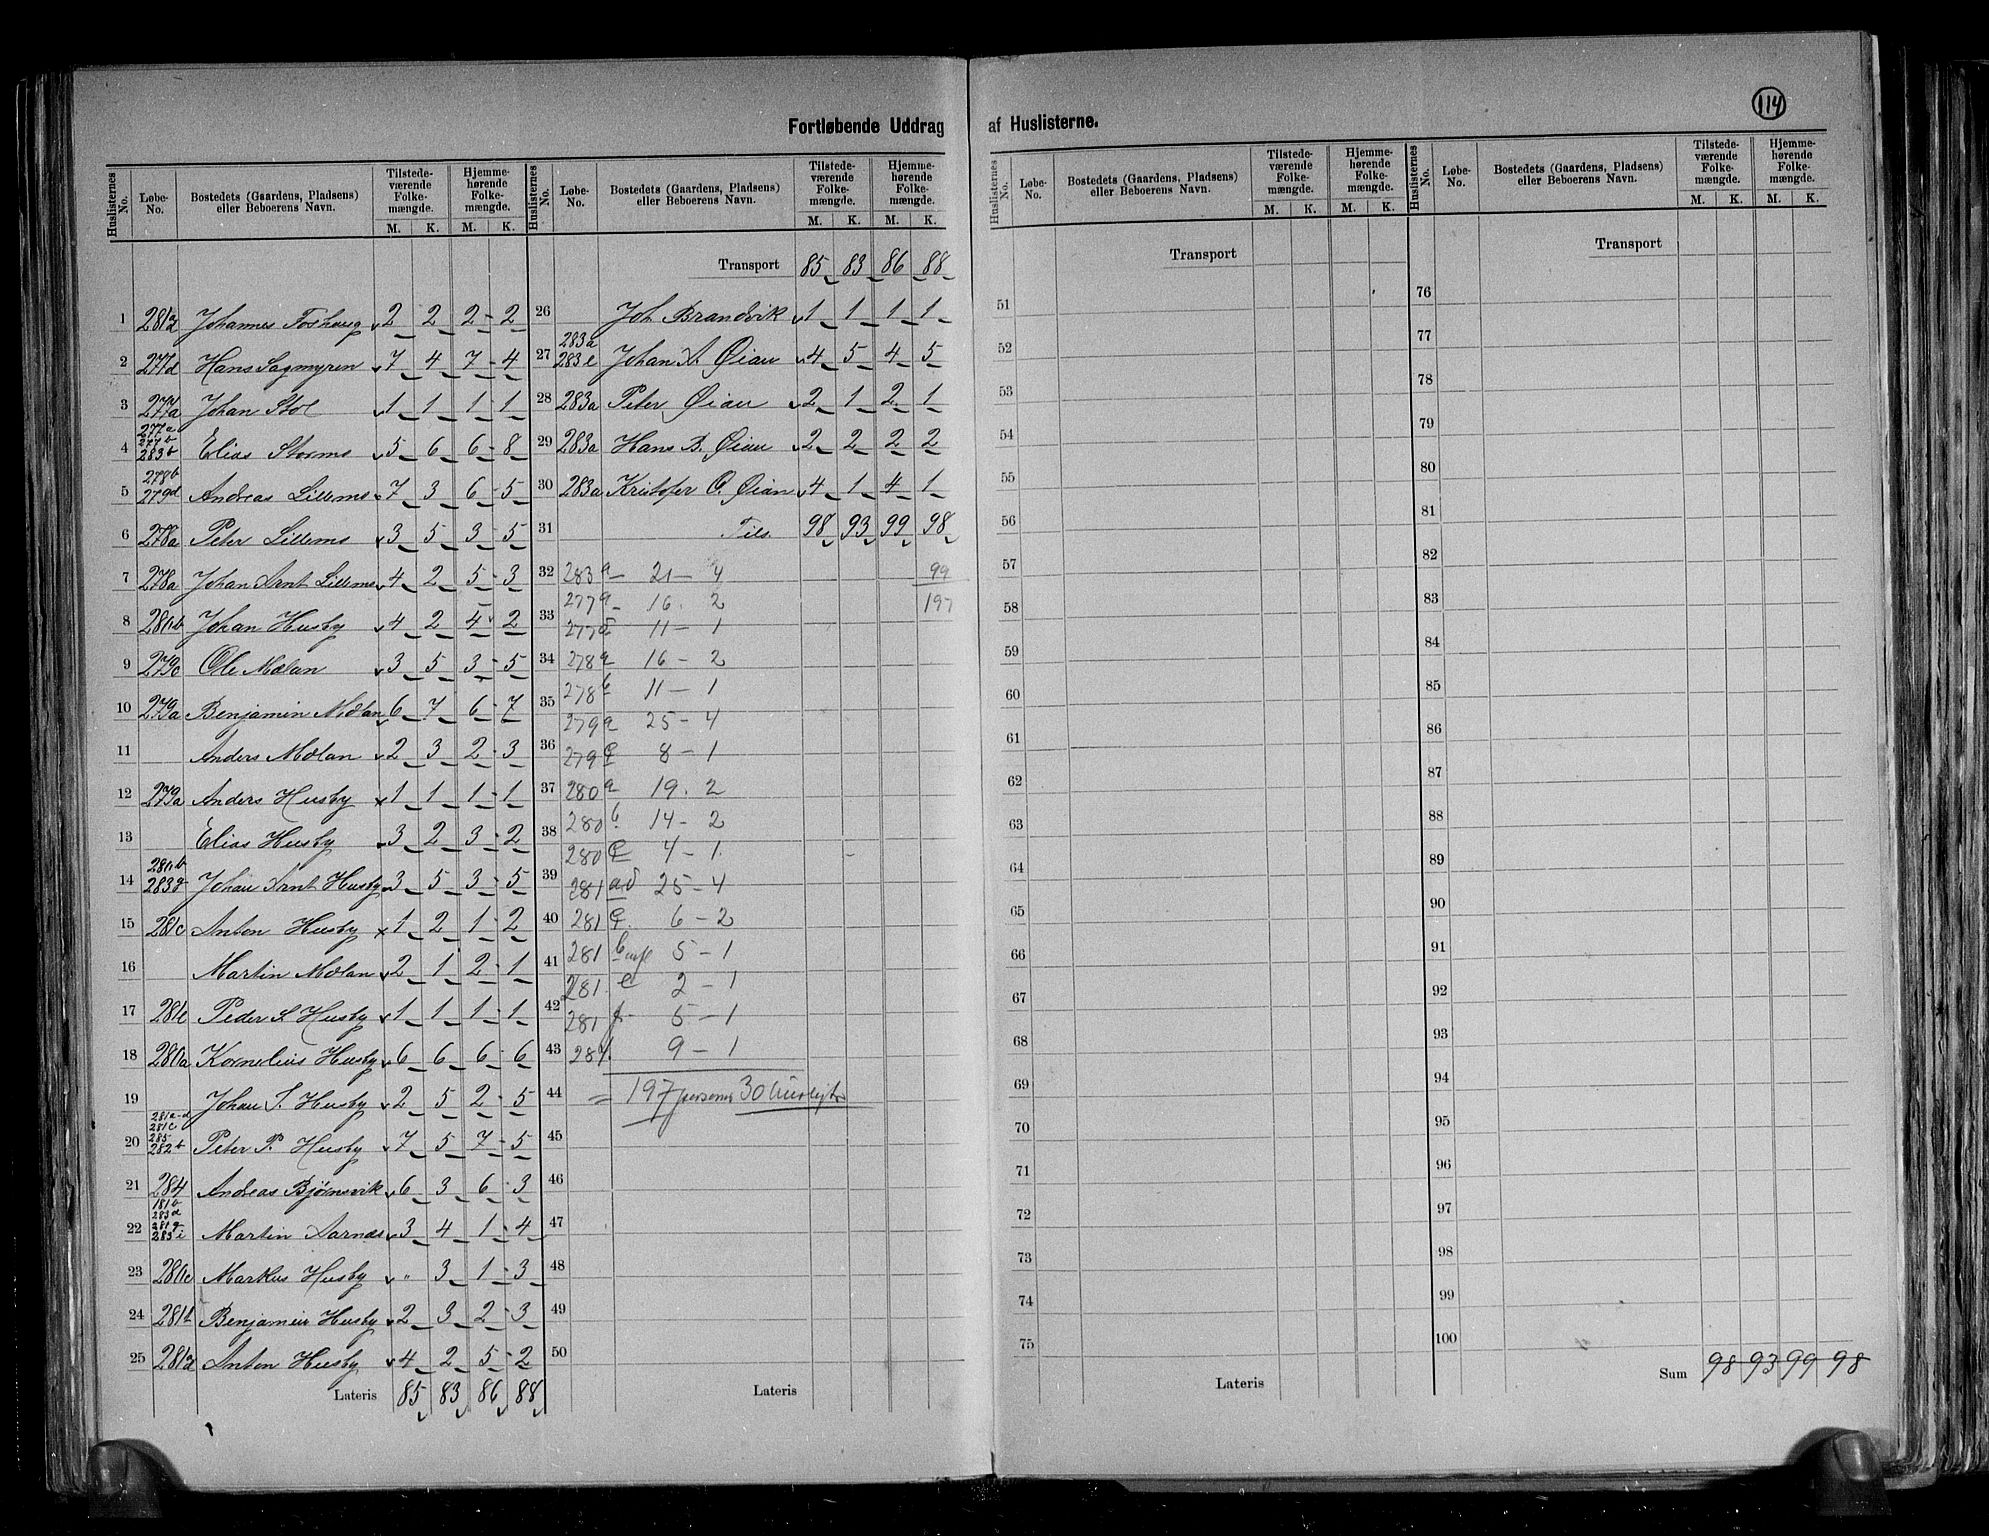 114
Fortløbende Uddrag af Huslisterne.
Huslisternes No. Løbe-No. Bostedets (Gaardens, Pladsens) eller Beboerens Navn. Tilstedeværende Folkemængde. Hjemmehørende Folkemængde.
M. K. M. K.
1 281a Johannes Foshaug 2 2 2 2
2 277d Hans Sagmyren 7 4 7 4
3 277a Johan Stol 1 1 1 1
4 277a 277b 283b Elias Stormo 5 6 6 8
5 278b 279d Andreas Lillemo 7 3 6 5
6 278a Peter Lillemo 3 5 3 5
7 278a Johan Arnt Lillemo 4 2 5 3
8 281b Johan Husby 4 2 4 2
9 279c Ole Mølan 3 5 3 5
10 279a Benjamin Mølan 6 7 6 7
11 Anders Mølan 2 3 2 3
12 279a Anders Husby 1 1 1 1
13 Elias Husby 3 2 3 2
14 281b 283g Johan Arnt Husby 3 5 3 5
15 281c Anton Husby 1 2 1 2
16 Martin Mølan 2 1 2 1
17 281e Peder S Husby 1 1 1 1
18 280a Kornelius Husby 6 6 6 6
19 Johan S. Husby 2 5 2 5
20 281a-d 281c 285 282b Peter P. Husby 7 5 7 5
21 284 Andreas Bjørnsvik 6 3 6 3
22 181b 283d 281g 283i Martin Aarnes 3 4 1 4
23 280c Markus Husby " 3 1 3
24 281b Benjamin Husby 2 3 2 3
25 281a Anton Husby 4 2 5 2
Lateris 85 83 86 88
Huslisternes No. Løbe-No. Bostedets (Gaardens, Pladsens) eller Beboerens Navn. Tilstedeværende Folkemængde. Hjemmehørende Folkemængde.
M. K. M. K.
Transport 85 83 86 88
26 Joh. Brandvik 1 1 1 1
27 283a 283e Johan A Øian 4 5 4 5
28 283a Peter Øian 2 1 2 1
29 283a Hans B. Øian 2 2 2 2
30 283a Kristofer O. Øian 4 1 4 1
31 Tils. 98 93 99 98
32 283a - 21 - 4 99
277a - 16. 2 197
33 277d 11 - 1
34 278a 16 - 2
278b 11 - 1
35
279a 25 - 4
36 279c 8 - 1
37 280a 19. 2
280b. 14 - 2
38
280c 4 - 1.
39 281 ad 25 - 4
40 281 c. 6 - 2
41 281 5 - 1
281. e 2 - 1
42 281 f - 5 - 1
43 284. 9 - 1
44 = 197 personer 30
45
46
47
48
49
50
Lateris
Huslisternes No. Løbe-No. Bostedets (Gaardens, Pladsens) eller Beboerens Navn. Tilstedeværende Folkemængde. Hjemmehørende Folkemængde.
M. K. M. K.
Transport
51
52
53
54
55
56
57
58
59
60
61
62
63
64
65
66
67
68
69
70
71
72
73
74
75
Lateris
Huslisternes No. Løbe-No. Bostedets (Gaardens, Pladsens) eller Beboerens Navn. Tilstedeværende Folkemængde. Hjemmehørende Folkemængde.
M. K. M. K.
Transport
76
77
78
79
80
81
82
83
84
85
86
87
88
89
90
91
92
93
94
95
96
97
98
99
100
Sum 98 93 99 98